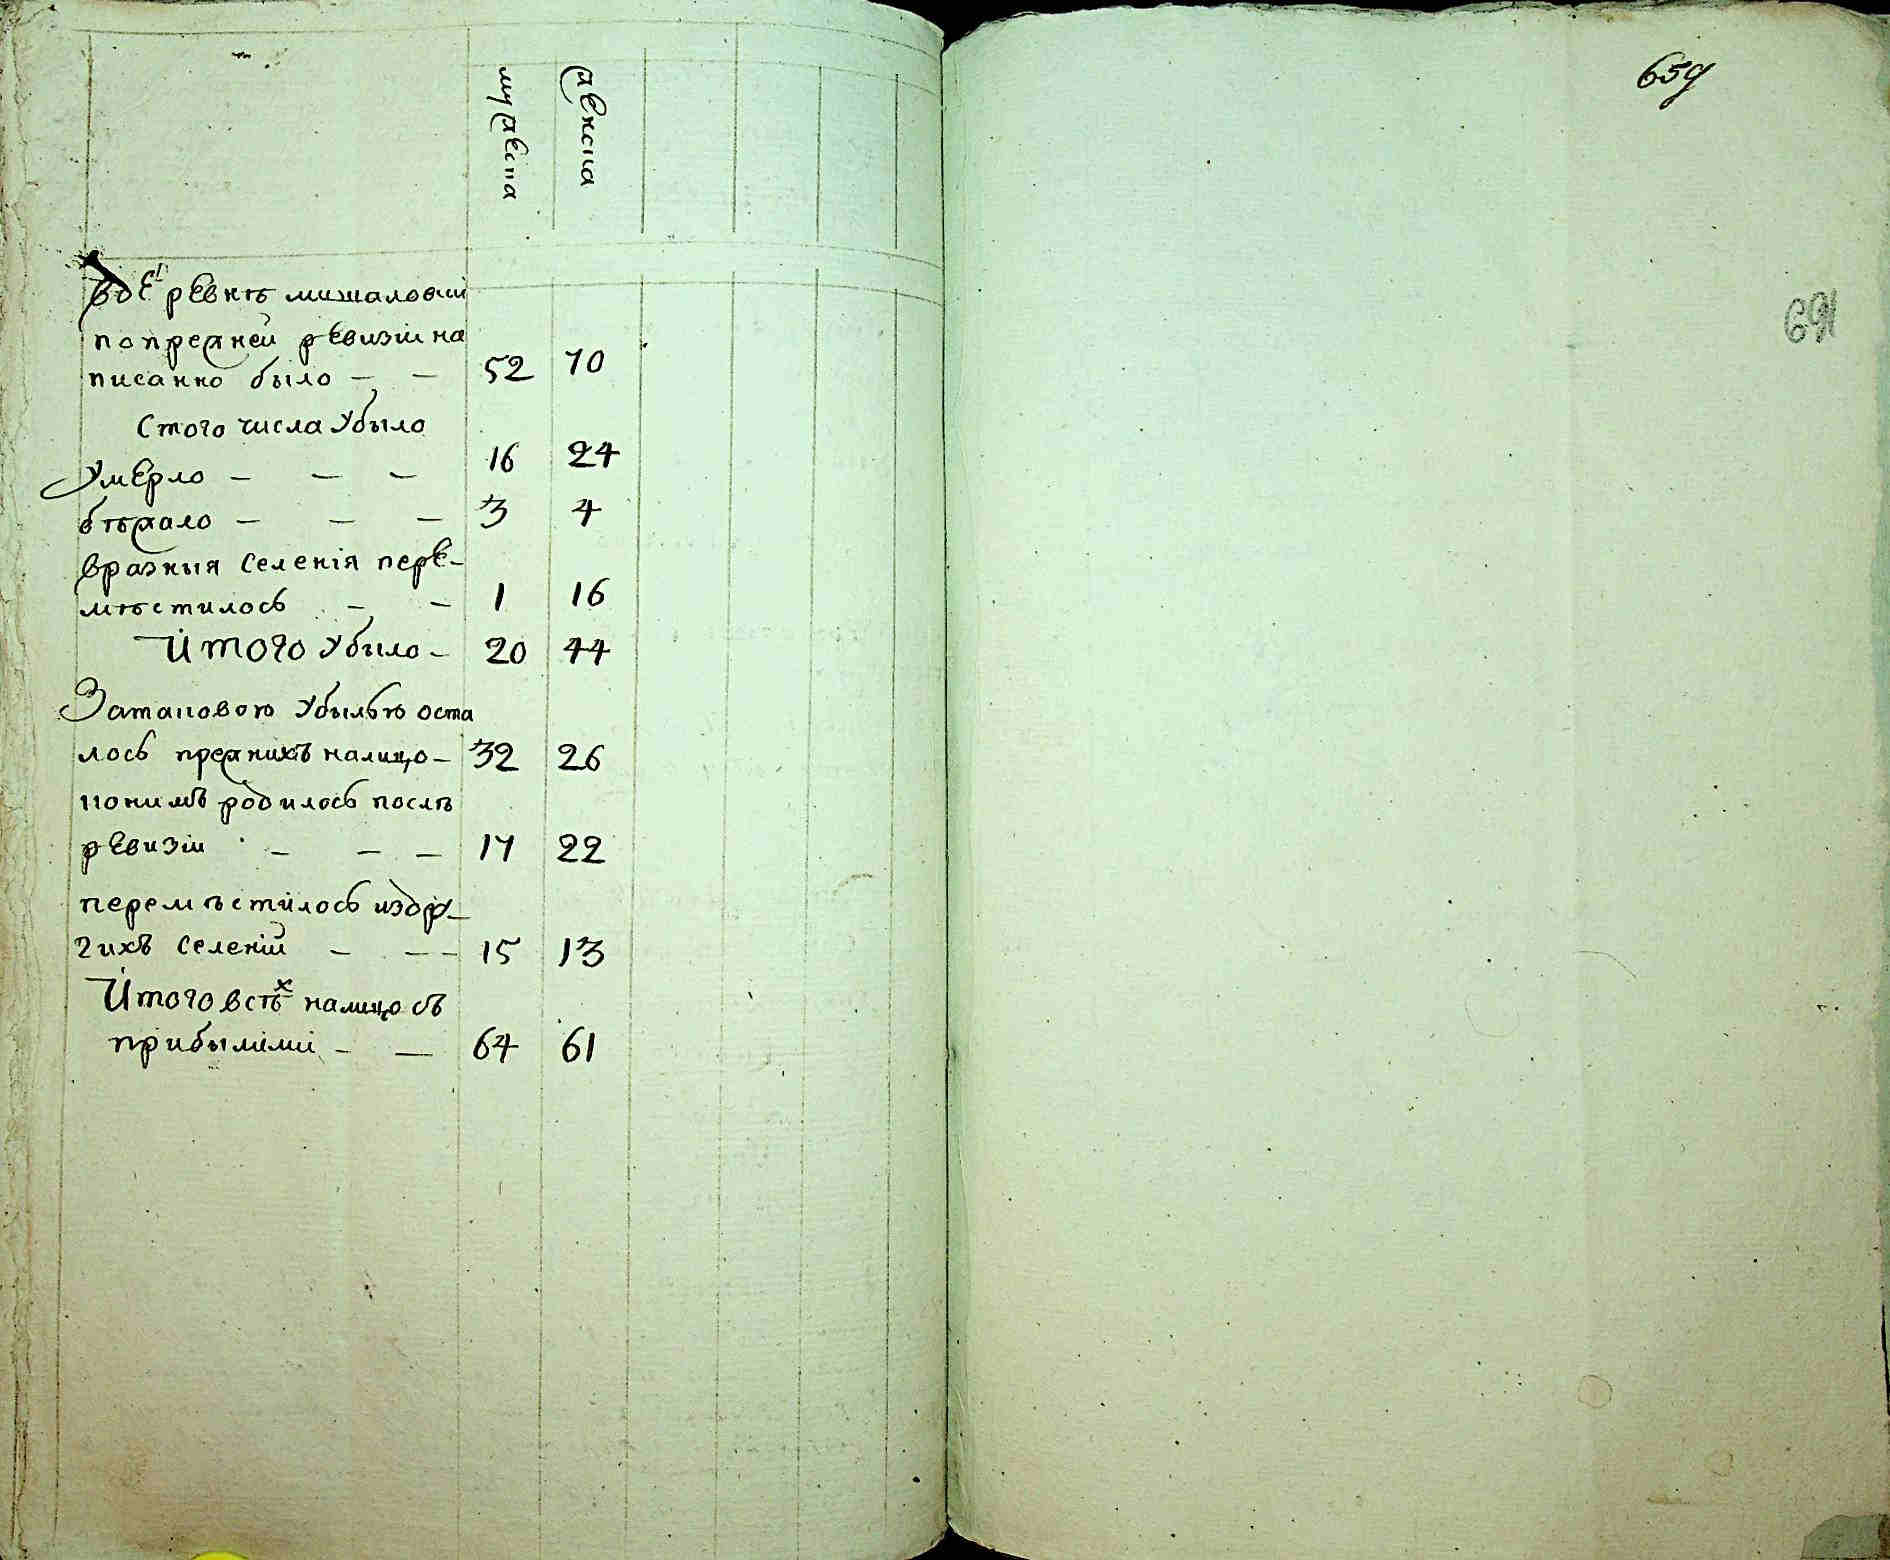 мужеска
женска
Въ деревнѣ мишаловки
попрежней ревизіи на
писанно было — — 52 70
Стого числа убыло
умерло — — — 16 24
бѣжало — — — 3 4
вразныя селенія пере-
мѣстилось — — 1 16
Итого убыло — 20 44
Затаковою убылью оста
лось прежнихъ налицо — 32 26
конимъ родилось послѣ
ревизіи — — — 17 22
перемѣстилось издру-
гихъ селеній — — — 15 13
Итого всѣх налицо съ
прибылими — — 64 61
659
691